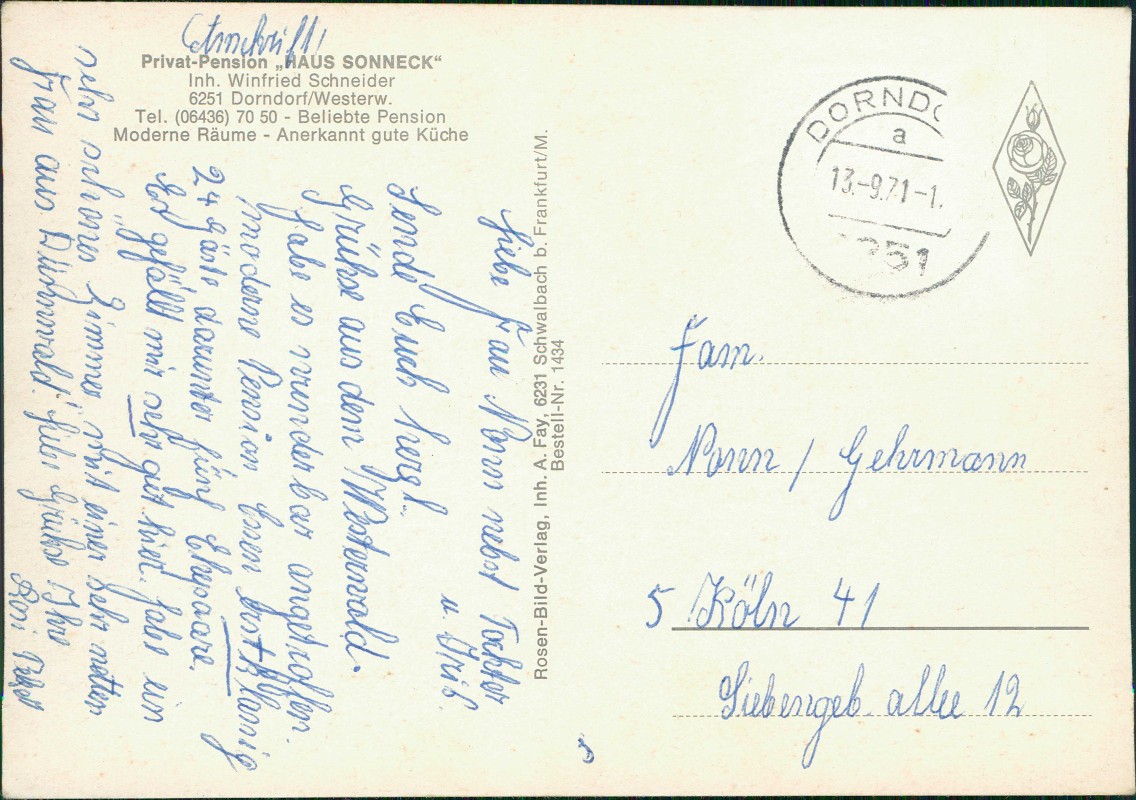 Anschrift!
Privat-Pension „HAUS SONNECK“
Inh. Winfried Schneider
6251 Dorndorf/Westerw.
Tel. (06436) 70 50 - Beliebte Pension
Moderne Räume - Anerkannt gute Küche
Liebe Frau Nonn nebst Tochter
u. Iris.
Sende Euch herzl.
Grüße aus dem Westerwald.
Habe es wunderbar angetroffen.
moderne Pension Essen
24 Gäste darunter fünf Ehepaare.
Es gefällt mir sehr gut hier. Habe ein
sehr schönes Zimmer mit einer sehr netten
Frau aus Liebe Grüße Ihre
Rosen-Bild-Verlag, Inh. A. Fay, 6231 Schwalbach b. Frankfurt/M.
Bestell-Nr. 1434
DORNDO
a
13.-9.71-1.
251
Fam.
Nonn / Gehrmann
5 Köln 41
Siebengeb. allee 12